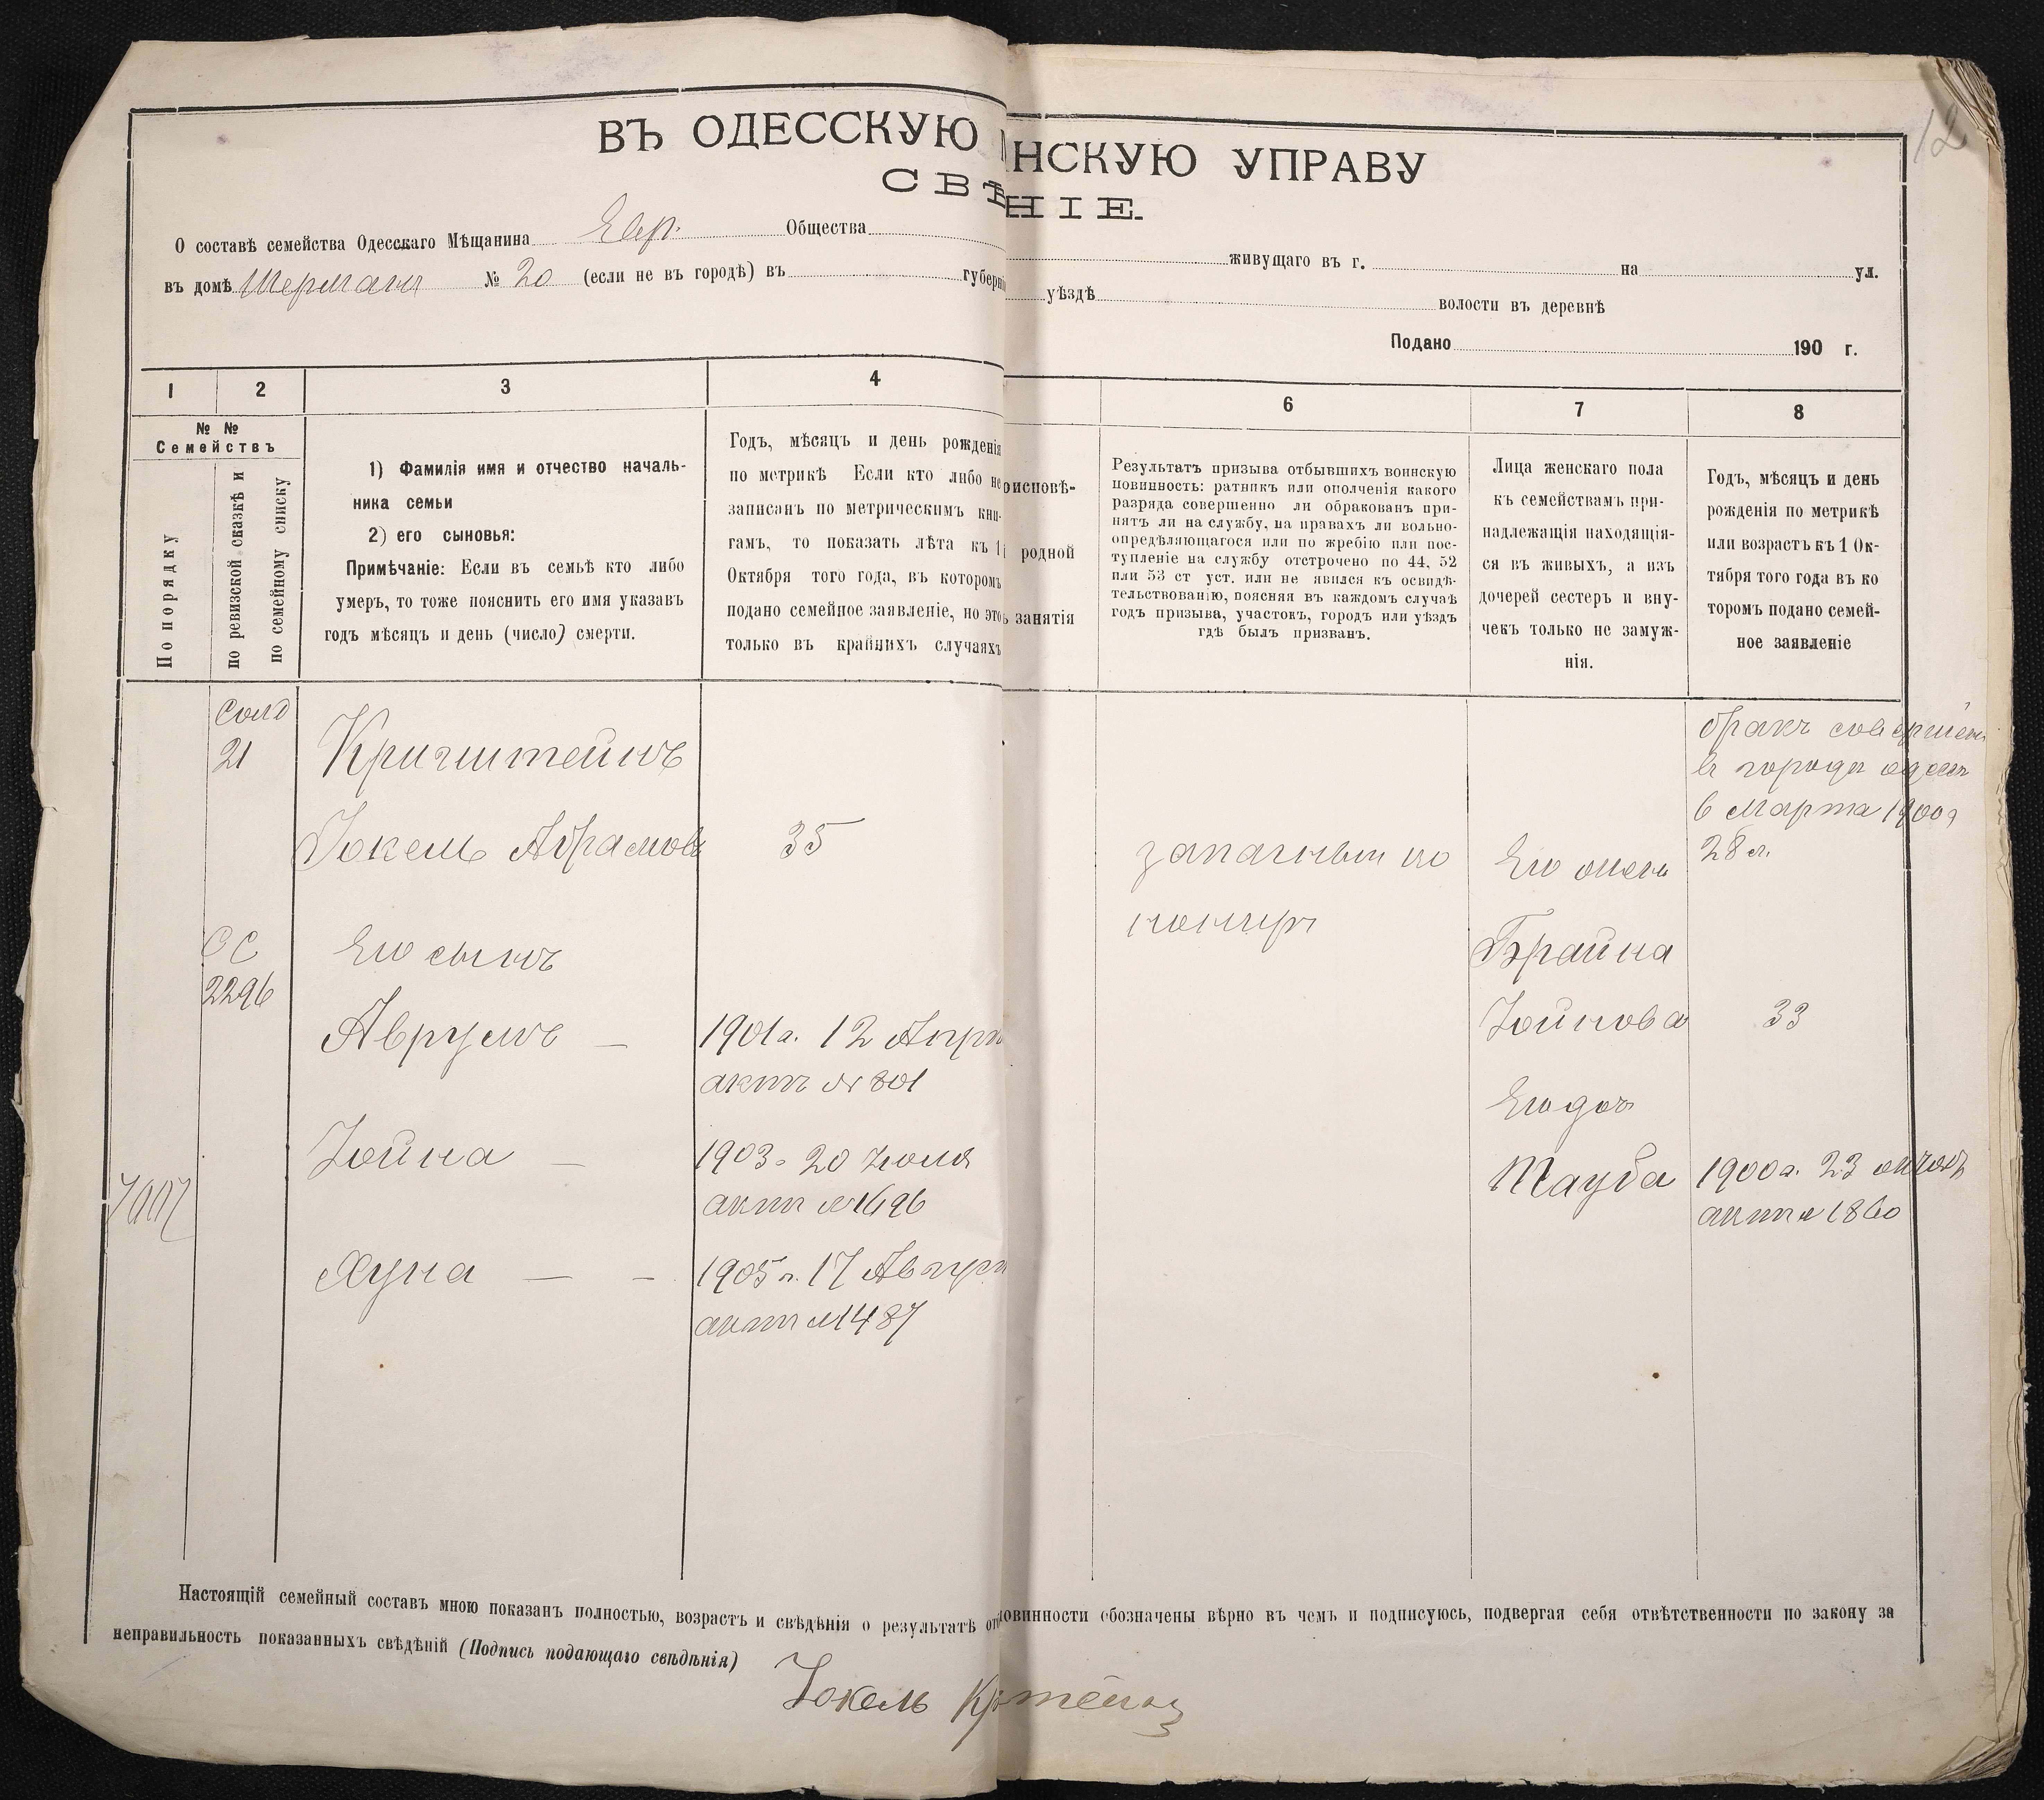 12
ВЪ ОДЕССКУЮ НСКУЮ УПРАВУ
СВѢ НІЕ.
О составѣ семейства Одесскаго Мѣщанина Евр. Общества живущаго въ г. на ул.
въ домѣ Шерманъ № 20 (если не въ городѣ) въ губерні уѣздѣ волости въ деревнѣ
Подано 190 г.
1 2 3 4 6 7 8
№ №
Семействъ
По порядку
по ревизской сказкѣ и
по семейному списку
1) Фамилія имя и отчество началь-
ника семьи
2) его сыновья:
Примѣчаніе: Если въ семьѣ кто либо
умеръ, то тоже пояснить его имя указавъ
годъ мѣсяцъ и день (число) смерти.
Годъ, мѣсяцъ и день рожденія
по метрикѣ Если кто либо не
записанъ по метрическимъ кни-
гамъ, то показать лѣта къ 1
Октября того года, въ которомъ
подано семейное заявленіе, но это
только въ крайнихъ случаяхъ
оисповѣ-
і родной
ь занятія
Результатъ призыва отбывшихъ воинскую
повинность: ратникъ или ополченія какого
разряда совершенно ли обракованъ при-
нятъ ли на службу, на правахъ ли вольно-
опредѣляющагося или по жребію или пос-
тупленіе на службу отстрочено по 44, 52
или 53 ст уст. или не явился къ освидѣ-
тельствованію, поясняя въ каждомъ случаѣ
годъ призыва, участокъ, городъ или уѣздъ
гдѣ былъ призванъ.
Лица женскаго пола
къ семействамъ при-
надлежащія находящія-
ся въ живыхъ, а изъ
дочерей сестеръ и вну-
чекъ только не замуж-
нія.
Годъ, мѣсяцъ и день
рожденія по метрикѣ
или возрастъ къ 1 Ок-
тября того года въ ко
торомъ подано семей-
ное заявленіе
Солд
21
Кригштейнъ
Іокель Абрамовъ 35
запасный
бракъ совершенъ
въ городѣ Одессѣ
6 Марта 1900 г
28 л.
Его жена
СС
2296
Его сынъ
Брайна
Аврумъ — 1901 г. 12 Апрѣ
актъ № 801
Іойнова 33
Его доч
Іойна — 1903 г 20 Іюля
актъ № 1696
Тауба 1900 г. 23 октяб
актъ № 1860
Хуна — — 1905 г. 17 Август
актъ № 1487
Настоящій семейный составъ мною показанъ полностью, возрастъ и свѣдѣнія о результатѣ от овинности обозначены вѣрно въ чемъ и подписуюсь, подвергая себя отвѣтственности по закону за
неправильность показанныхъ свѣдѣній (Подпись подающаго свѣдѣнія)
Іокель Кр тейнъ